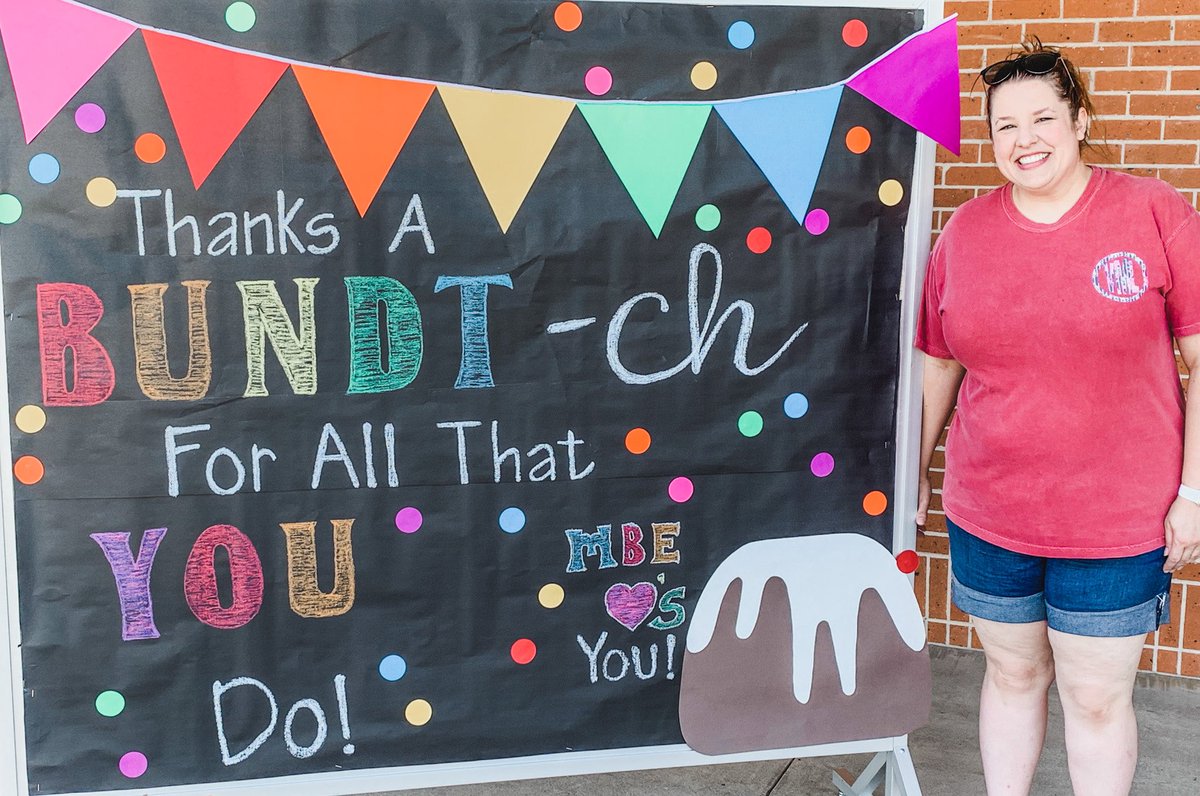 Thanks A
BUNDT-ch
For All That
YOU
Do!
MBE
♥'s
You!